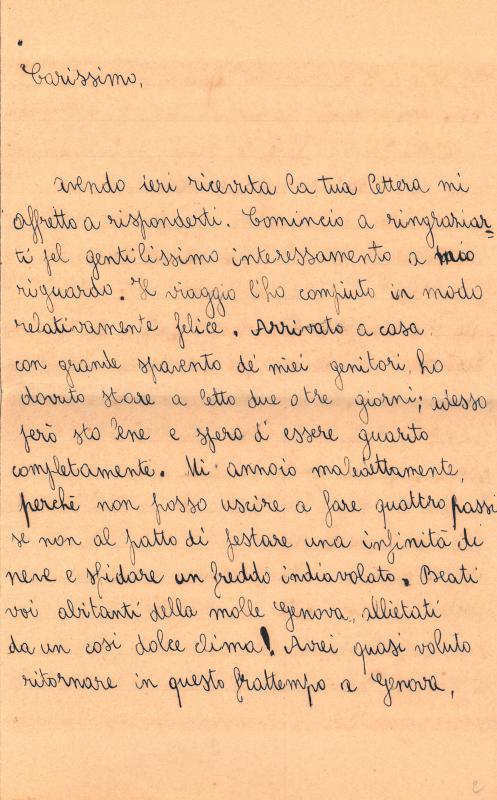 Carissimo,
avendo ieri ricevuta la tua lettera mi
affretto a risponderti. Comincio a ringraziar=
ti pel gentilissimo interessamento a mio
riguardo. Il viaggio l'ho compiuto in modo
relativamente felice. Arrivato a casa
con grande spavento de' miei genitori, ho
dovuto stare a letto due o tre giorni; adesso
però sto bene e spero d'essere guarito
completamente. Mi annoio maledettamente,
perchè non posso uscire a fare quattro passi
se non al patto di pestare una infinità di
neve e sfidare un freddo indiavolato. Beati
voi abitanti della molle Genova, allietati
da un così dolce clima! Avrei quasi voluto
ritornare in questo frattempo a Genova,
2